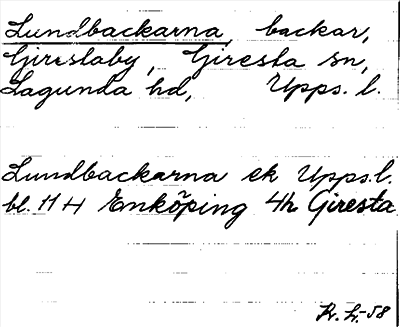 Lundbackarna, backar,
Gireslaby, Giresta sn,
Lagunda hd, Upps. l.
Lundbackarna ek Upps. l.
bl. 11 H Enköping 4h Giresta
R. L. -58